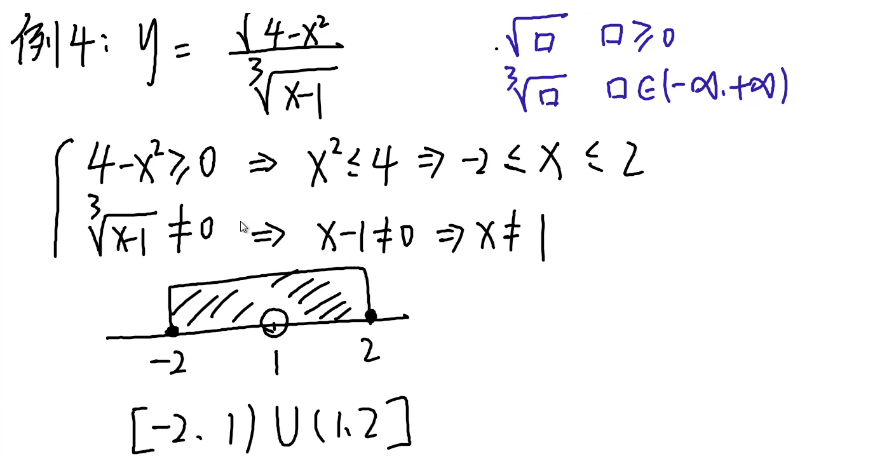 例4: y = √(4-x²) / ∛(x-1)
√□ □≥0
∛□ □∈(-∞.+∞)
4-x²≥0 ⇒ x²≤4 ⇒ -2≤x≤2
∛(x-1)≠0 ⇒ x-1≠0 ⇒ x≠1
-2 1 2
[-2. 1)∪(1.2]